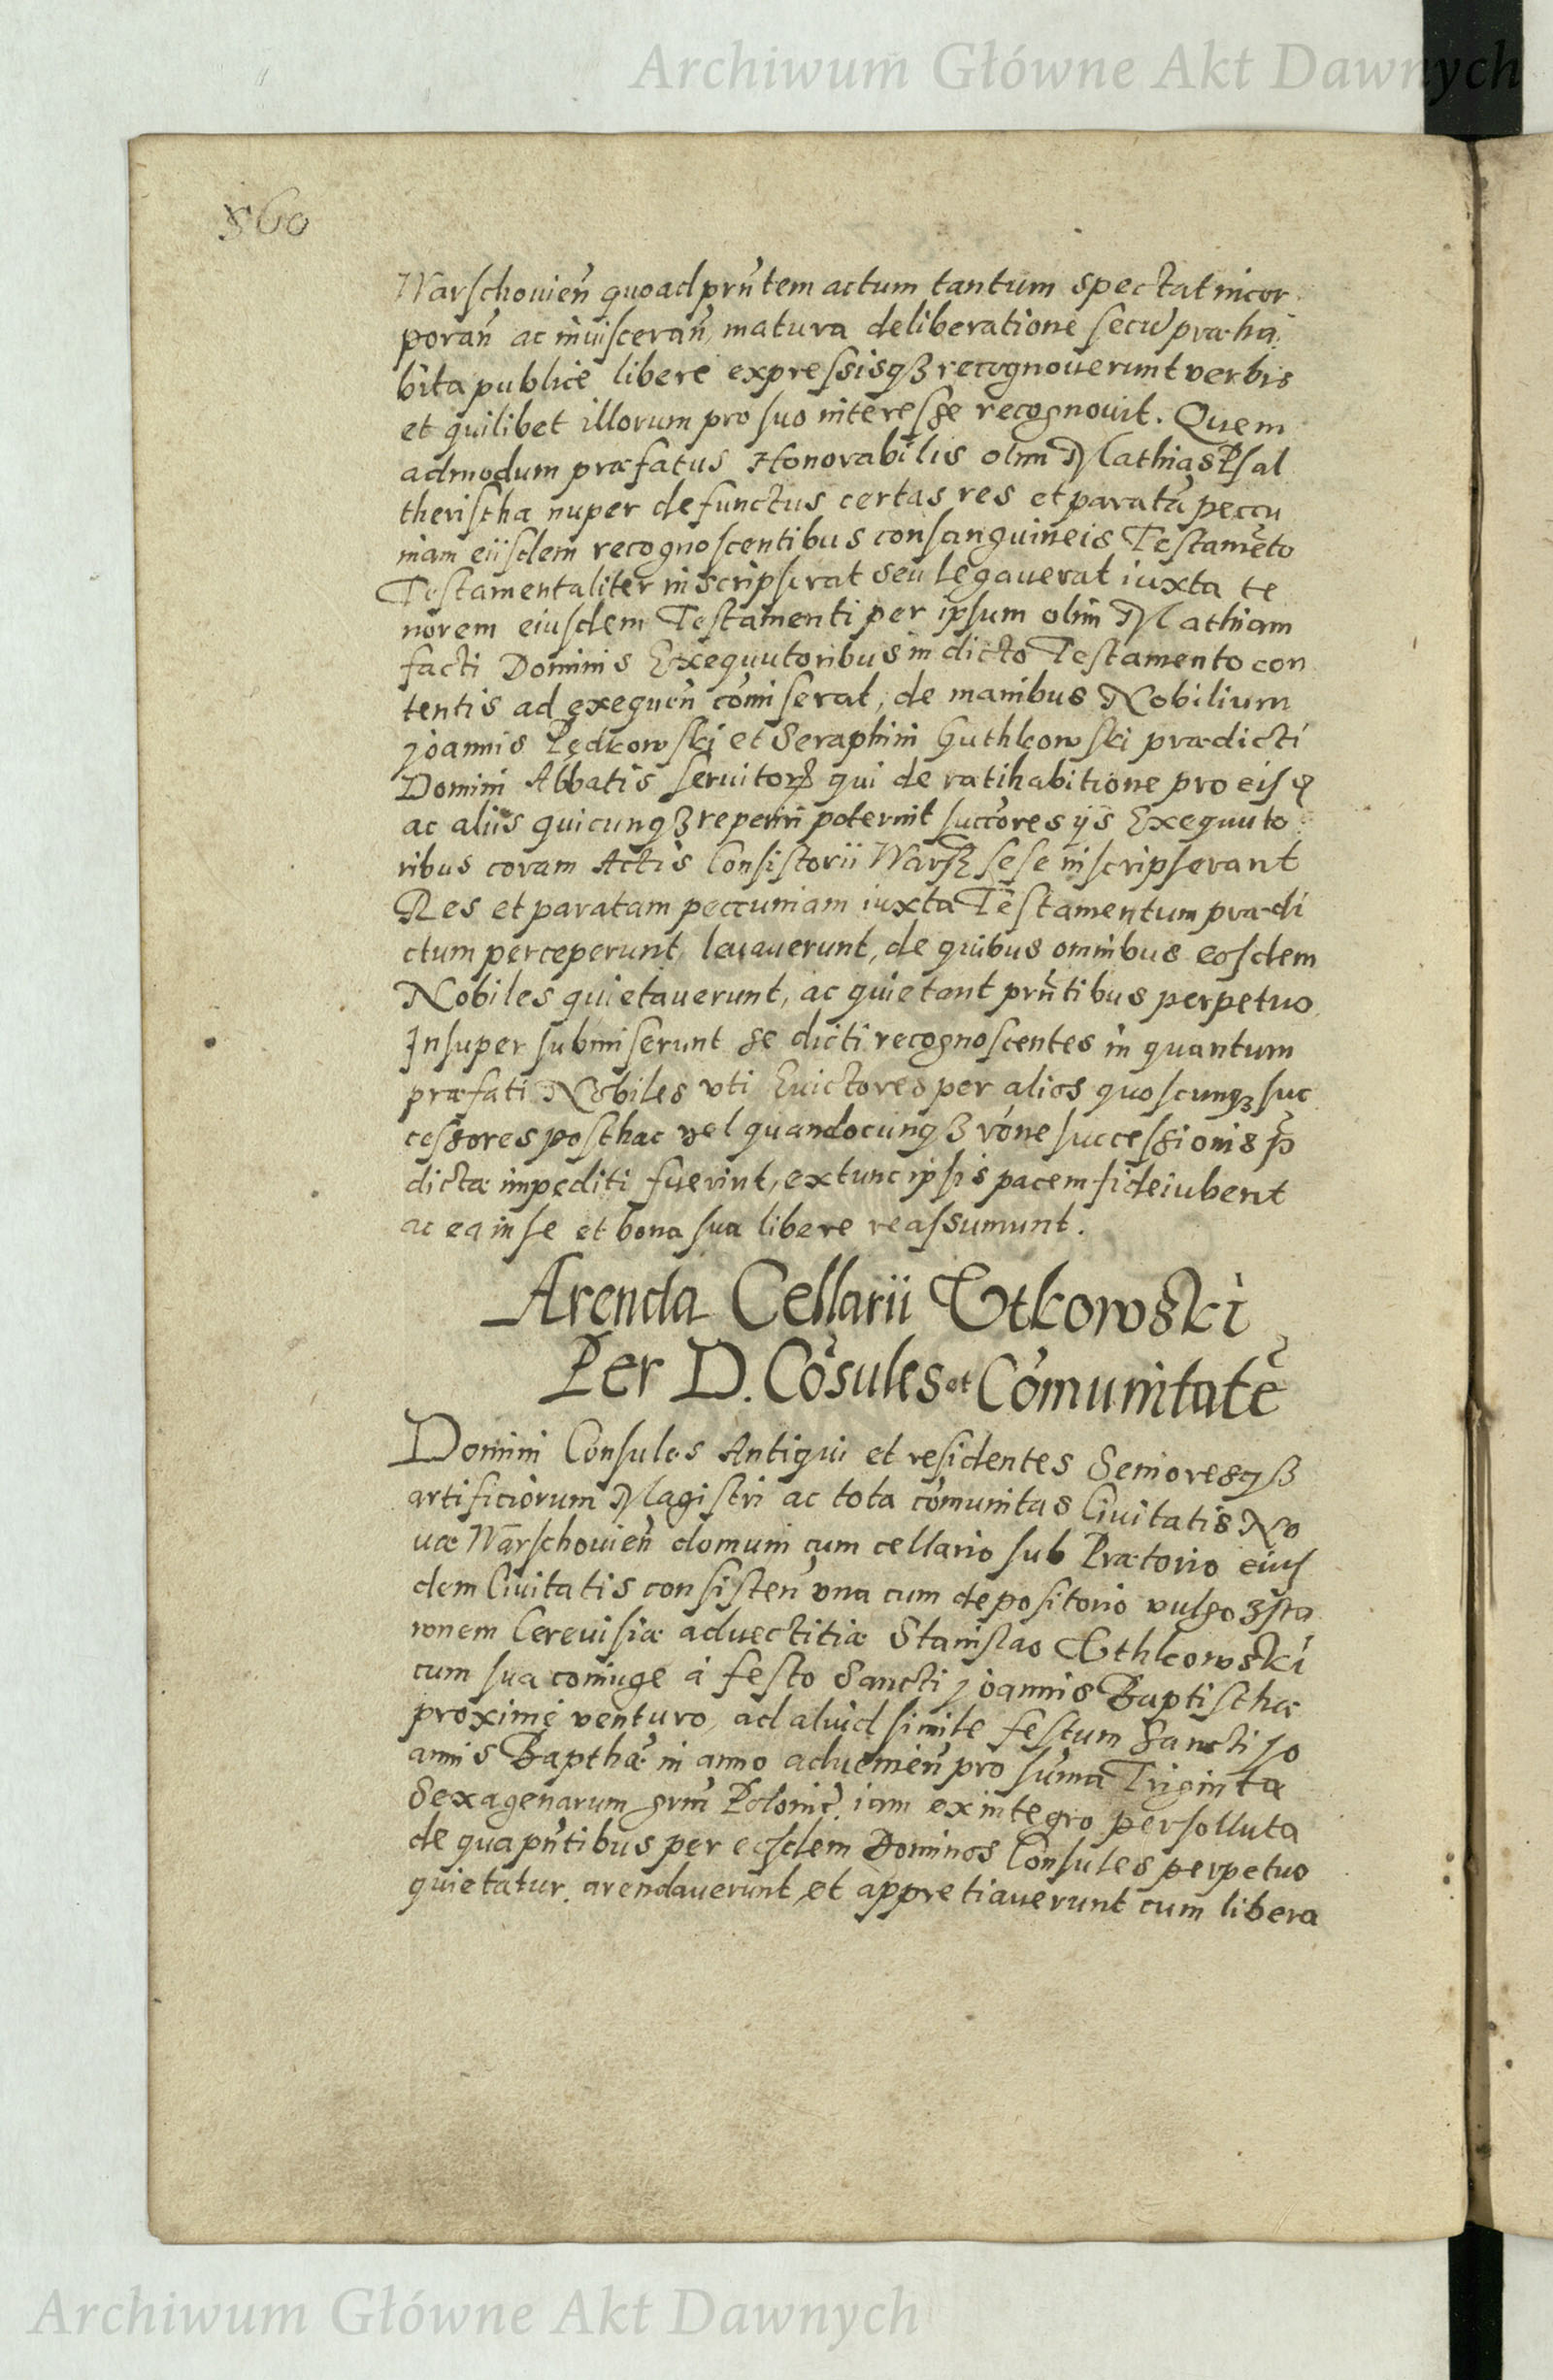 Archiwum Główne Akt Dawnych
860
Warschouien̄ quoad prn̄tem actum tantum spectat incor
poran̄ ac inuisceran̄, matura deliberatione secū præha
bita publicè liberè expressisqȝ recognouerunt verbis
et quilibet illorum pro suo interesse recognouit. Quem
admodum præfatus Honorabilis olim Mathias Psal
theristha nuper defunctus certas res et paratā peccu
niam eiisdem recognoscentibus consanguineis Testamēto
Testamentaliter inscripserat seu legauerat iuxta te
norem eiusdem Testamenti per ipsum olim Mathiam
facti Dominis Exequutoribus in dicto Testamento con
tentis ad exequen̄ com̄iserat, de manibus Nobilium
Joannis Pędkowski et Seraphini Guthkowski prædicti
Domini Abbatis seruitorꝝ qui de ratihabitione pro eisꝗ
ac aliis quicunqȝ reperiri poterint succ̄ores ijs Exequuto
ribus coram Actis Consistorii Warsȝ sese inscripserant
Res et paratam peccuniam iuxta Testamentum prædi
ctum perceperunt, leuauerunt, de quibus omnibus eosdem
Nobiles quietauerunt, ac quietant prn̄tibus perpetuo
Insuper submiserunt se dicti recognoscentes in quantum
præfati Nobiles vti Euictores per alios quoscunqȝ suc
cessores posthac vel quandocunqȝ rōne successionis p̄
dictæ impediti fuerint, extunc ipsis pacem fideiubent
ac ea in se et bona sua libere reassumunt.
Arenda Cellarii Vtkowski
Per D. Cōsules et Cōmunitatē
Domini Consules Antiqui et residentes Senioresqȝ
artificiorum Magistri ac tota cōmunitas Ciuitatis No
uæ Warschouien̄ domum cum cellario sub Prætorio eius
dem Ciuitatis consisten̄ vna cum depositorio vulgo
Cereuisiæ aduectitiæ Stanislao Vthkowski
cum sua coniuge à festo Sancti Joannis Baptisthæ
proximè venturo, ad aliud simile festum Sancti Jo
annis Bapthæ in anno aduenien̄ pro sum̄a Triginta
Sexagenarum grm̄ Polonic̄. iam ex integro persolluta
de qua pn̄tibus per eosdem Dominos Consules perpetuo
quietatur, arendauerunt et appretiauerunt cum libera
Archiwum Główne Akt Dawnych